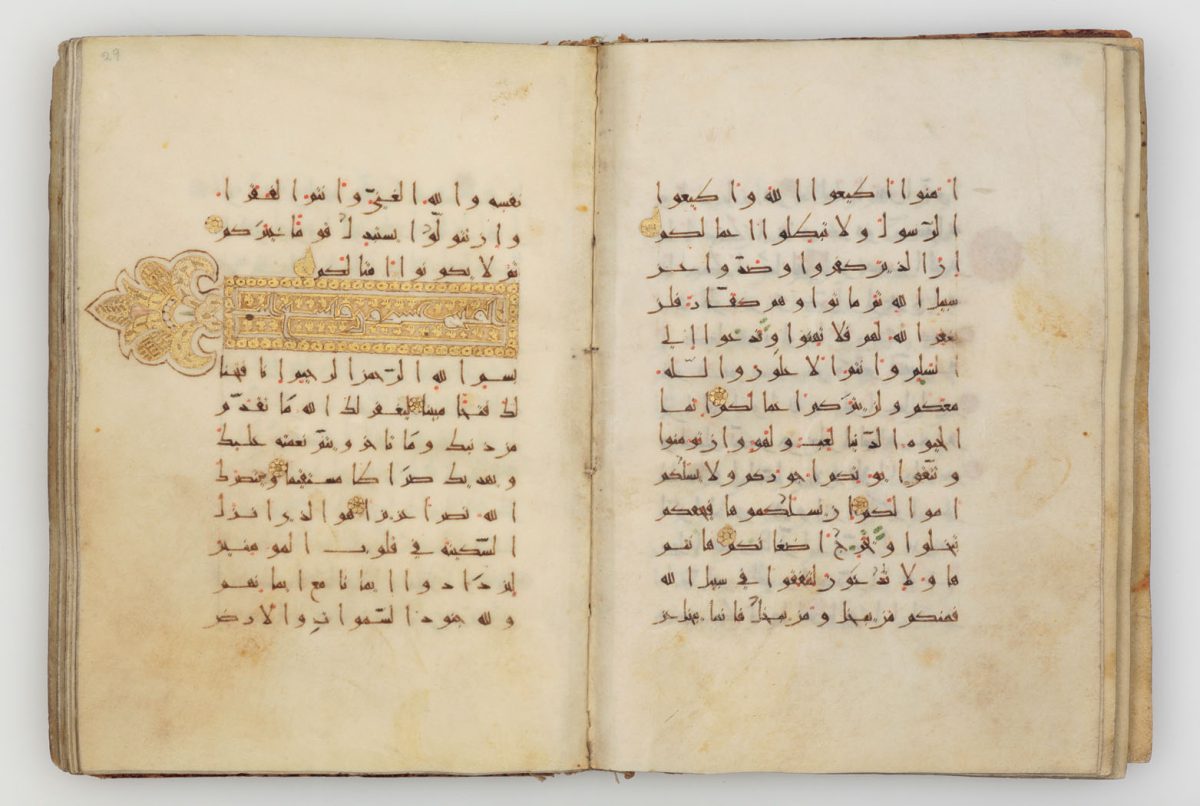 امنوا اطيعوا الله واطيعوا
الرسول ولا تبطلوا اعمالكم
ان الذين كفروا وصدوا عن
سبيل الله ثم ماتوا وهم كفار فلن
يغفر الله لهم فلا تهنوا وتدعوا الى
السلم وانتم الاعلون والله
معكم ولن يتركم اعمالكم انما
الحيوه الدنيا لعب ولهو وان تومنوا
وتتقوا يوتكم اجوركم ولا يسلكم
اموالكم ان يسلكموها فيحفكم
تبخلوا ويخرج اضغانكم هانتم
هاولا تدعون لتنفقوا في سبيل الله
فمنكم من يبخل ومن يبخل فانما يبخل عن
29
نفسه والله الغني وانتم الفقرا
وان تتولوا يستبدل قوما غيركم
ثم لا يكونوا امثالكم
بسم الله الرحمن الرحيم انا فتحنا
لك فتحا مبينا ليغفر لك الله ما تقدم
من ذنبك وما تاخر ويتم نعمته عليك
ويهديك صراطا مستقيما وينصرك
الله نصرا عزيزا هو الذي انزل
السكينه في قلوب المومنين
ليزدادوا ايمانا مع ايمانهم
ولله جنود السموات والارض